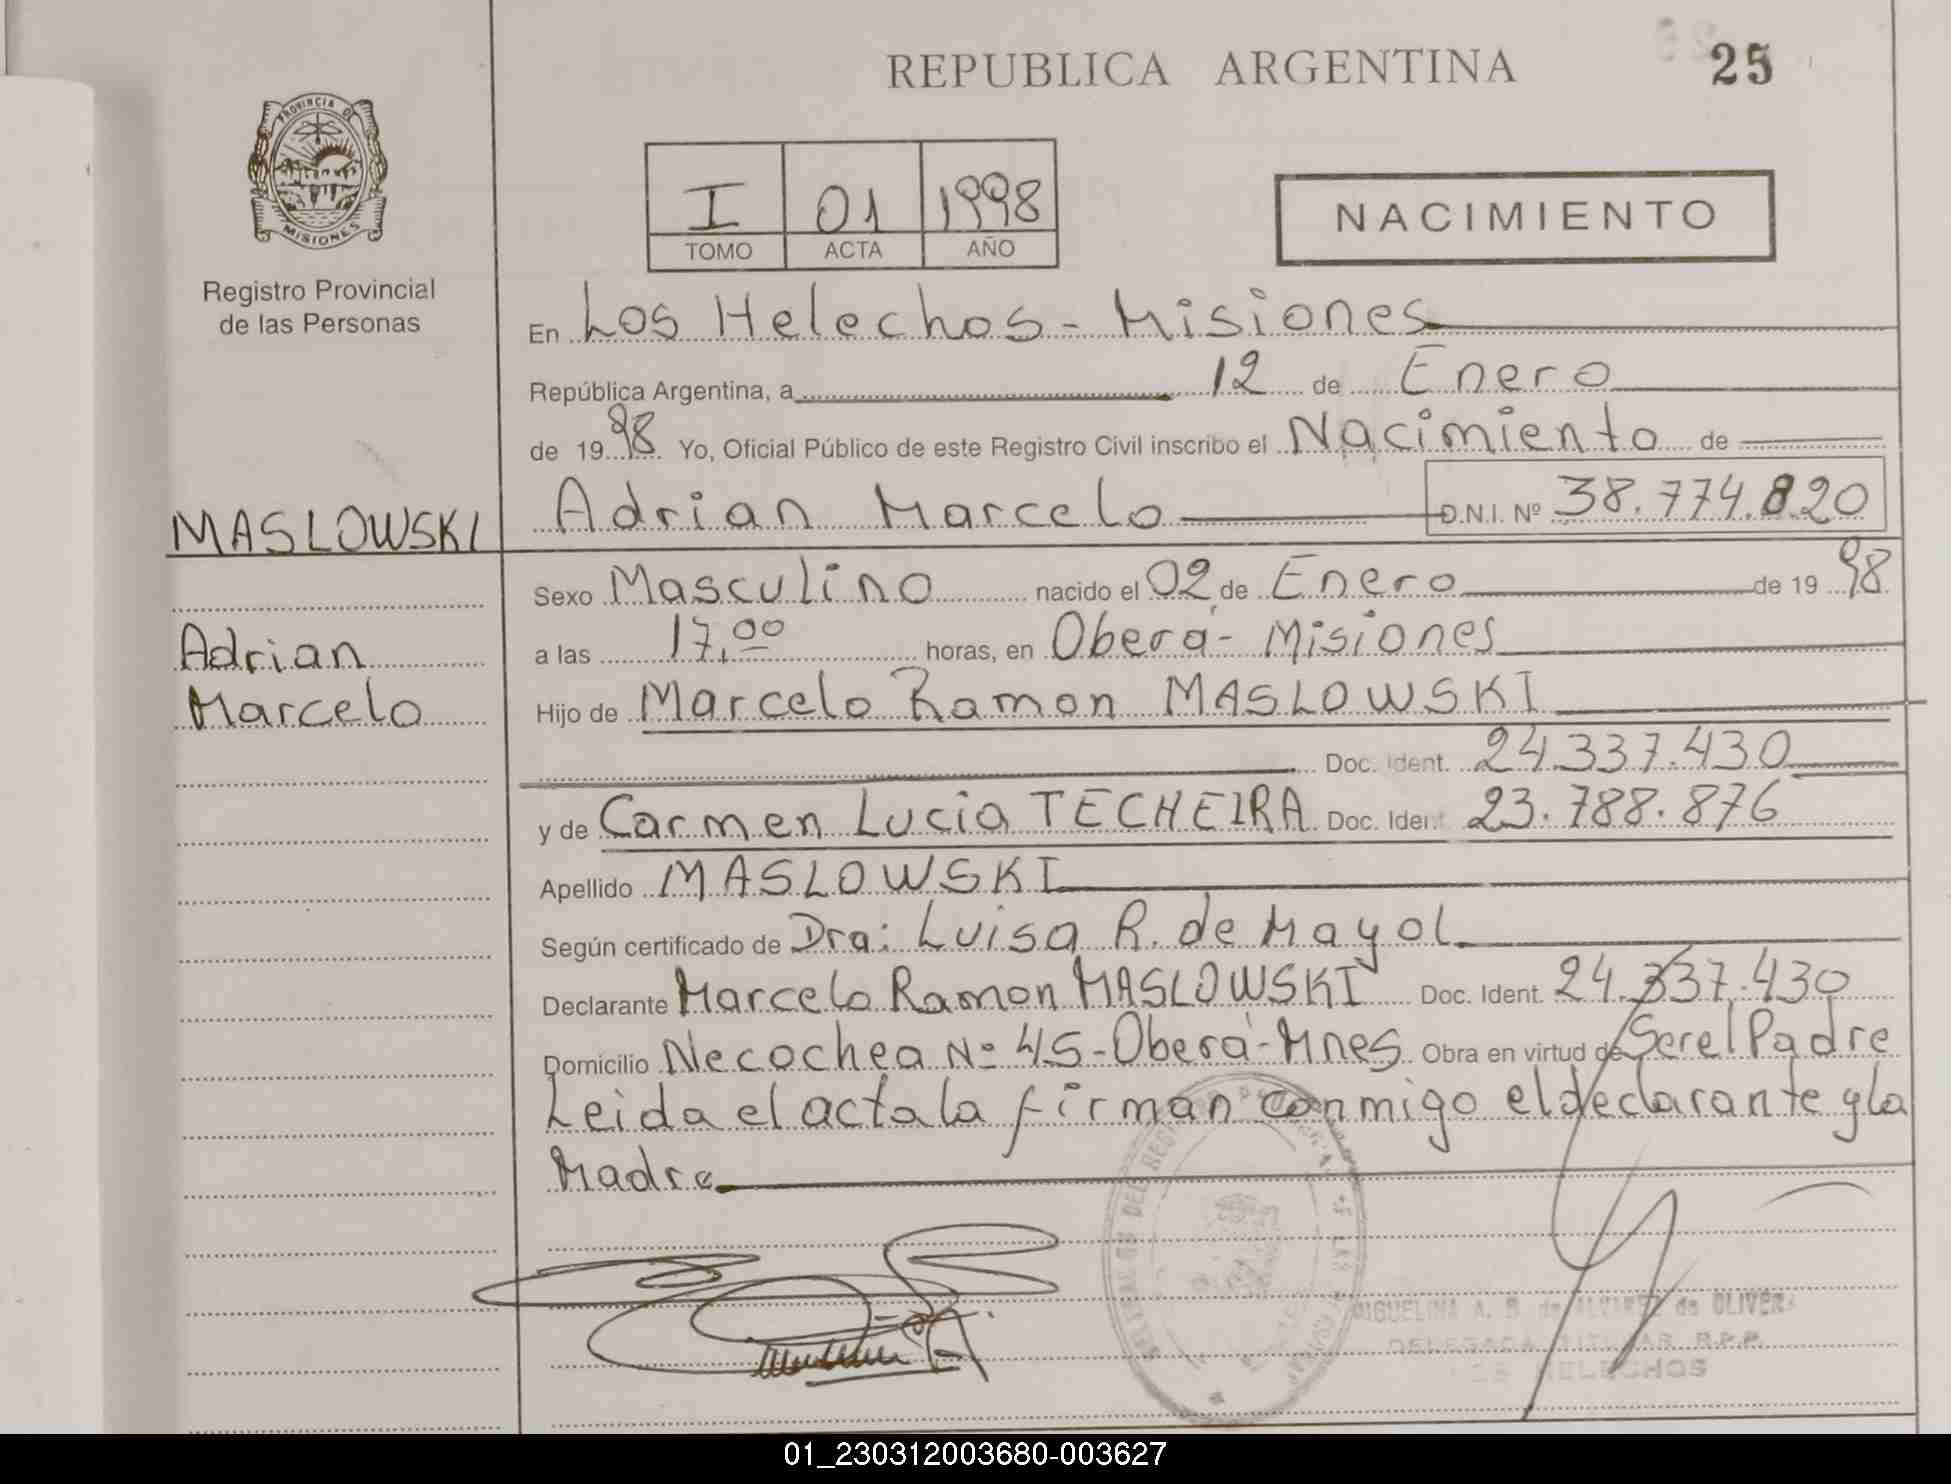 REPUBLICA ARGENTINA
25
PROVINCIA DE
MISIONES
Registro Provincial
de las Personas
I 01 1998
TOMO ACTA AÑO
NACIMIENTO
En Los Helechos - Misiones
República Argentina, a 12 de Enero
de 1998 Yo, Oficial Público de este Registro Civil inscribo el Nacimiento de
MASLOWSKI
Adrian Marcelo D.N.I. Nº 38.774.820
Sexo Masculino nacido el 02 de Enero de 1998
Adrian
Marcelo
a las 17,00 horas, en Oberá - Misiones
Hijo de Marcelo Ramon MASLOWSKI
Doc. Ident. 24.337.430
y de Carmen Lucia TECHEIRA Doc. Ident. 23.788.876
Apellido MASLOWSKI
Según certificado de Dra: Luisa R. de Mayol
Declarante Marcelo Ramon MASLOWSKI Doc. Ident. 24.337.430
Domicilio Necochea Nº 45 - Oberá - Mnes Obra en virtud de Ser el Padre
Leida el acta la firman conmigo el declarante y la
Madre
MIGUELINA A. de ALVAREZ de OLIVERA
DELEGADA TITULAR R.P.P.
HELECHOS
01_230312003680-003627